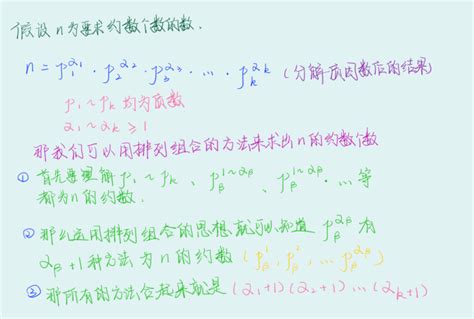 假设 n 为要求约数个数的数.
n = p₁^α₁ · p₂^α₂ · p₃^α₃ · … · pₖ^αₖ (分解质因数后的结果)
p₁ ~ pₖ 均为质数
α₁ ~ αₖ ≥ 1
那我们可以用排列组合的方法来求出n的约数个数
① 首先要理解 p₁ ~ pₖ 、 p_β^1~α_β 、 p_β^1~α_β · … 等
都为 n 的约数.
② 那么运用排列组合的思想就可以知道 p_β^α_β 有
α_β +1 种方法为 n 的约数 ( p_β^1, p_β^2, … p_β^α_β )
③ 那所有的方法合起来就是 (α₁+1)(α₂+1) … (αₖ+1)